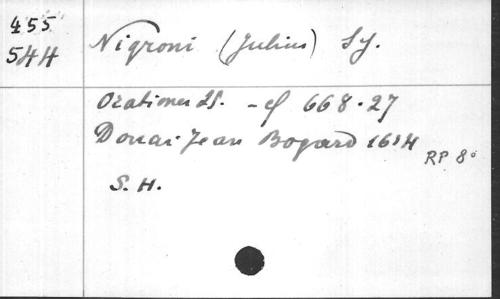 455
544
Nigroni (Julius) SJ.
Orationes 25. - cf 668.27
Douai Jean Bogard 1614
RP 8°
S. H.